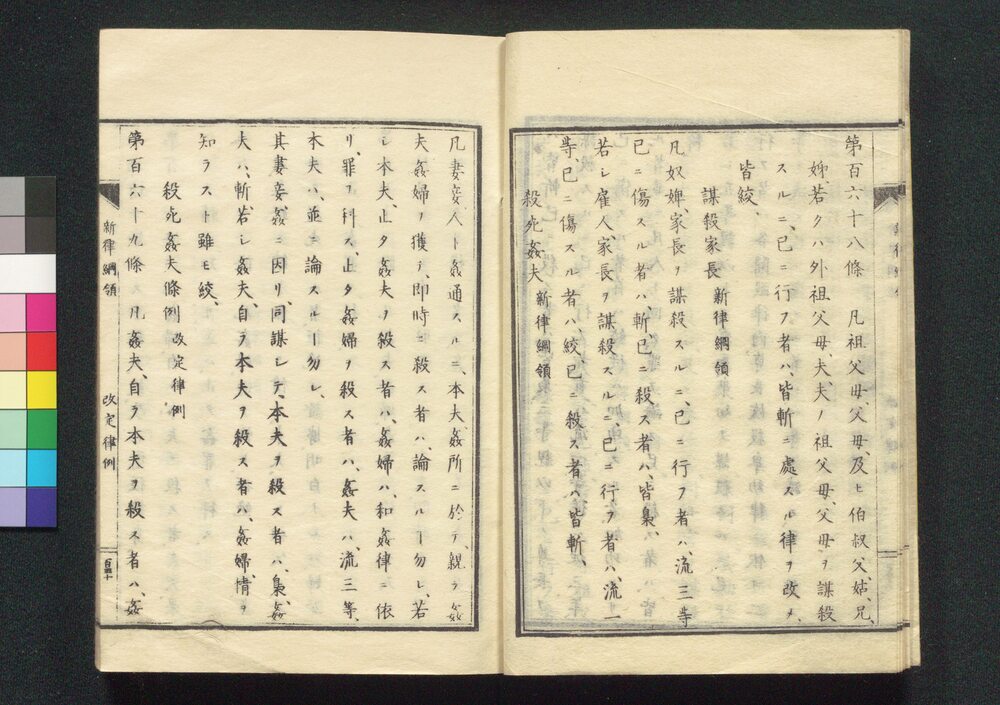 第百六十八條 凡祖父母父母、及ヒ伯叔父、姑、兄、
姊若クハ外祖父母、夫、夫ノ祖父母、父母ヲ謀殺
スルニ、已ニ行フ者ハ、皆斬ニ處スル律ヲ改メ、
皆絞、
謀殺家長 新律綱領
凡奴婢、家長ヲ謀殺スルニ、已ニ行フ者ハ、流三等
已ニ傷スル者ハ、斬、已ニ殺ス者ハ、皆梟、
若シ雇人、家長ヲ謀殺スルニ、已ニ行フ者ハ、流一
等已ニ傷スル者ハ、絞已ニ殺ス者ハ皆斬、
殺死姦夫 新律綱領
凡妻妾、人ト姦通スルニ、本夫、姦所ニ於テ、親ラ姦
夫姦婦ヲ獲テ、即時ニ殺ス者ハ、論スルヿ勿レ、若
シ本夫、止タ姦夫ヲ殺ス者ハ、姦婦ハ、和姦律ニ依
リ、罪ヲ科ス、止タ姦婦ヲ殺ス者ハ、姦夫ハ、流三等、
本夫ハ、並ニ論スルヿ勿レ、
其妻妾、姦ニ因リ、同謀シテ、本夫ヲ殺ス者ハ、梟、姦
夫ハ、斬、若シ姦夫、自ラ本夫ヲ殺ス者ハ、姦婦、情ヲ
知ラスト雖モ絞、
殺死姦夫條例 改定律例
第百六十九條 凡姦夫、自ラ本夫ヲ殺ス者ハ、姦
新律綱領 改定律例